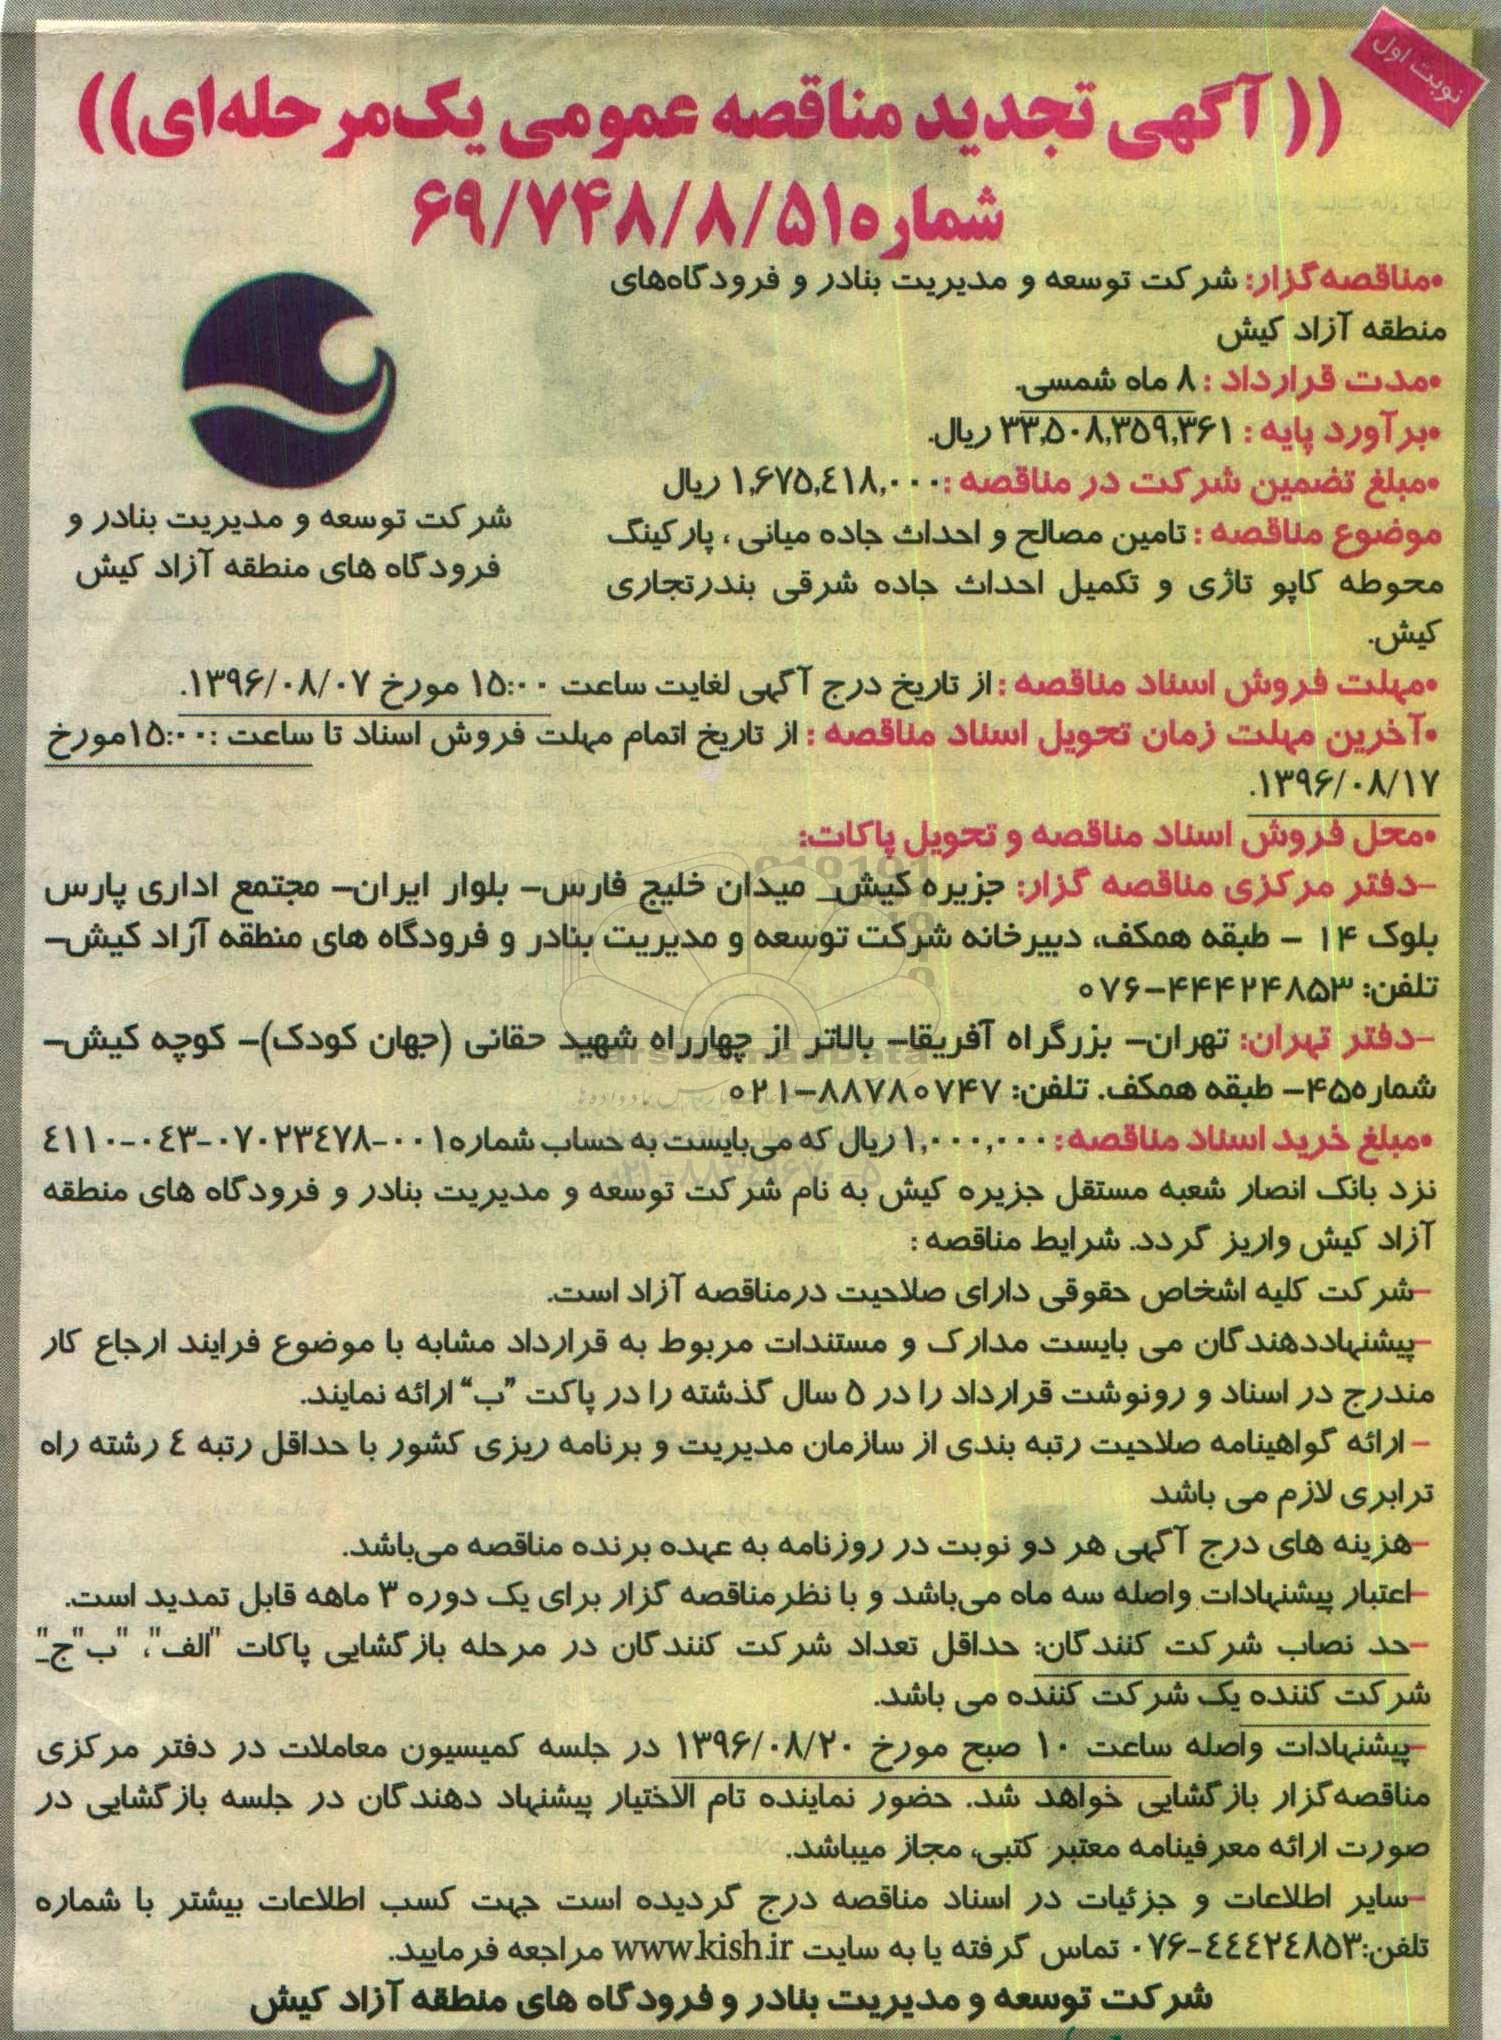 نوبت اول
(( آگهی تجدید مناقصه عمومی یک‌مرحله‌ای))
شماره۶۹/۷۴۸/۸/۵۱
•مناقصه‌گزار: شرکت توسعه و مدیریت بنادر و فرودگاه‌های
منطقه آزاد کیش
•مدت قرارداد : ۸ ماه شمسی.
•برآورد پایه : ۳۳,۵۰۸,۳۵۹,۳۶۱ ریال.
•مبلغ تضمین شرکت در مناقصه :۱,۶۷۵,٤۱۸,۰۰۰ ریال
موضوع مناقصه : تامین مصالح و احداث جاده میانی ، پارکینگ
محوطه کاپو تاژی و تکمیل احداث جاده شرقی بندرتجاری
کیش.
شرکت توسعه و مدیریت بنادر و
فرودگاه های منطقه آزاد کیش
•مهلت فروش اسناد مناقصه : از تاریخ درج آگهی لغایت ساعت ۱۵:۰۰ مورخ ۱۳۹۶/۰۸/۰۷.
•آخرین مهلت زمان تحویل اسناد مناقصه : از تاریخ اتمام مهلت فروش اسناد تا ساعت :۱۵:۰۰مورخ
۱۳۹۶/۰۸/۱۷.
•محل فروش اسناد مناقصه و تحویل پاکات:
–دفتر مرکزی مناقصه گزار: جزیره کیش_ میدان خلیج فارس– بلوار ایران– مجتمع اداری پارس
بلوک ۱۴ – طبقه همکف، دبیرخانه شرکت توسعه و مدیریت بنادر و فرودگاه های منطقه آزاد کیش–
تلفن: ۴۴۴۲۴۸۵۳–۰۷۶
–دفتر تهران: تهران– بزرگراه آفریقا– بالاتر از چهارراه شهید حقانی (جهان کودک)– کوچه کیش–
شماره۴۵– طبقه همکف. تلفن: ۸۸۷۸۰۷۴۷–۰۲۱
•مبلغ خرید اسناد مناقصه: ۱,۰۰۰,۰۰۰ ریال که می‌بایست به حساب شماره۰۰۱-۰۷۰۲۳٤۷۸-۰٤۳-٤۱۱۰
نزد بانک انصار شعبه مستقل جزیره کیش به نام شرکت توسعه و مدیریت بنادر و فرودگاه های منطقه
آزاد کیش واریز گردد. شرایط مناقصه :
–شرکت کلیه اشخاص حقوقی دارای صلاحیت درمناقصه آزاد است.
–پیشنهاددهندگان می بایست مدارک و مستندات مربوط به قرارداد مشابه با موضوع فرایند ارجاع کار
مندرج در اسناد و رونوشت قرارداد را در ۵ سال گذشته را در پاکت ”ب“ ارائه نمایند.
– ارائه گواهینامه صلاحیت رتبه بندی از سازمان مدیریت و برنامه ریزی کشور با حداقل رتبه ٤ رشته راه
ترابری لازم می باشد
–هزینه های درج آگهی هر دو نوبت در روزنامه به عهده برنده مناقصه می‌باشد.
–اعتبار پیشنهادات واصله سه ماه می‌باشد و با نظرمناقصه گزار برای یک دوره ۳ ماهه قابل تمدید است.
–حد نصاب شرکت کنندگان: حداقل تعداد شرکت کنندگان در مرحله بازگشایی پاکات "الف"، "ب"ج"_
شرکت کننده یک شرکت کننده می باشد.
–پیشنهادات واصله ساعت ۱۰ صبح مورخ ۱۳۹۶/۰۸/۲۰ در جلسه کمیسیون معاملات در دفتر مرکزی
مناقصه‌گزار بازگشایی خواهد شد. حضور نماینده تام الاختیار پیشنهاد دهندگان در جلسه بازگشایی در
صورت ارائه معرفینامه معتبر کتبی، مجاز میباشد.
–سایر اطلاعات و جزئیات در اسناد مناقصه درج گردیده است جهت کسب اطلاعات بیشتر با شماره
تلفن:٤٤٤۲٤۸۵۳-۰۷۶ تماس گرفته یا به سایت www.kish.ir مراجعه فرمایید.
شرکت توسعه و مدیریت بنادر و فرودگاه های منطقه آزاد کیش